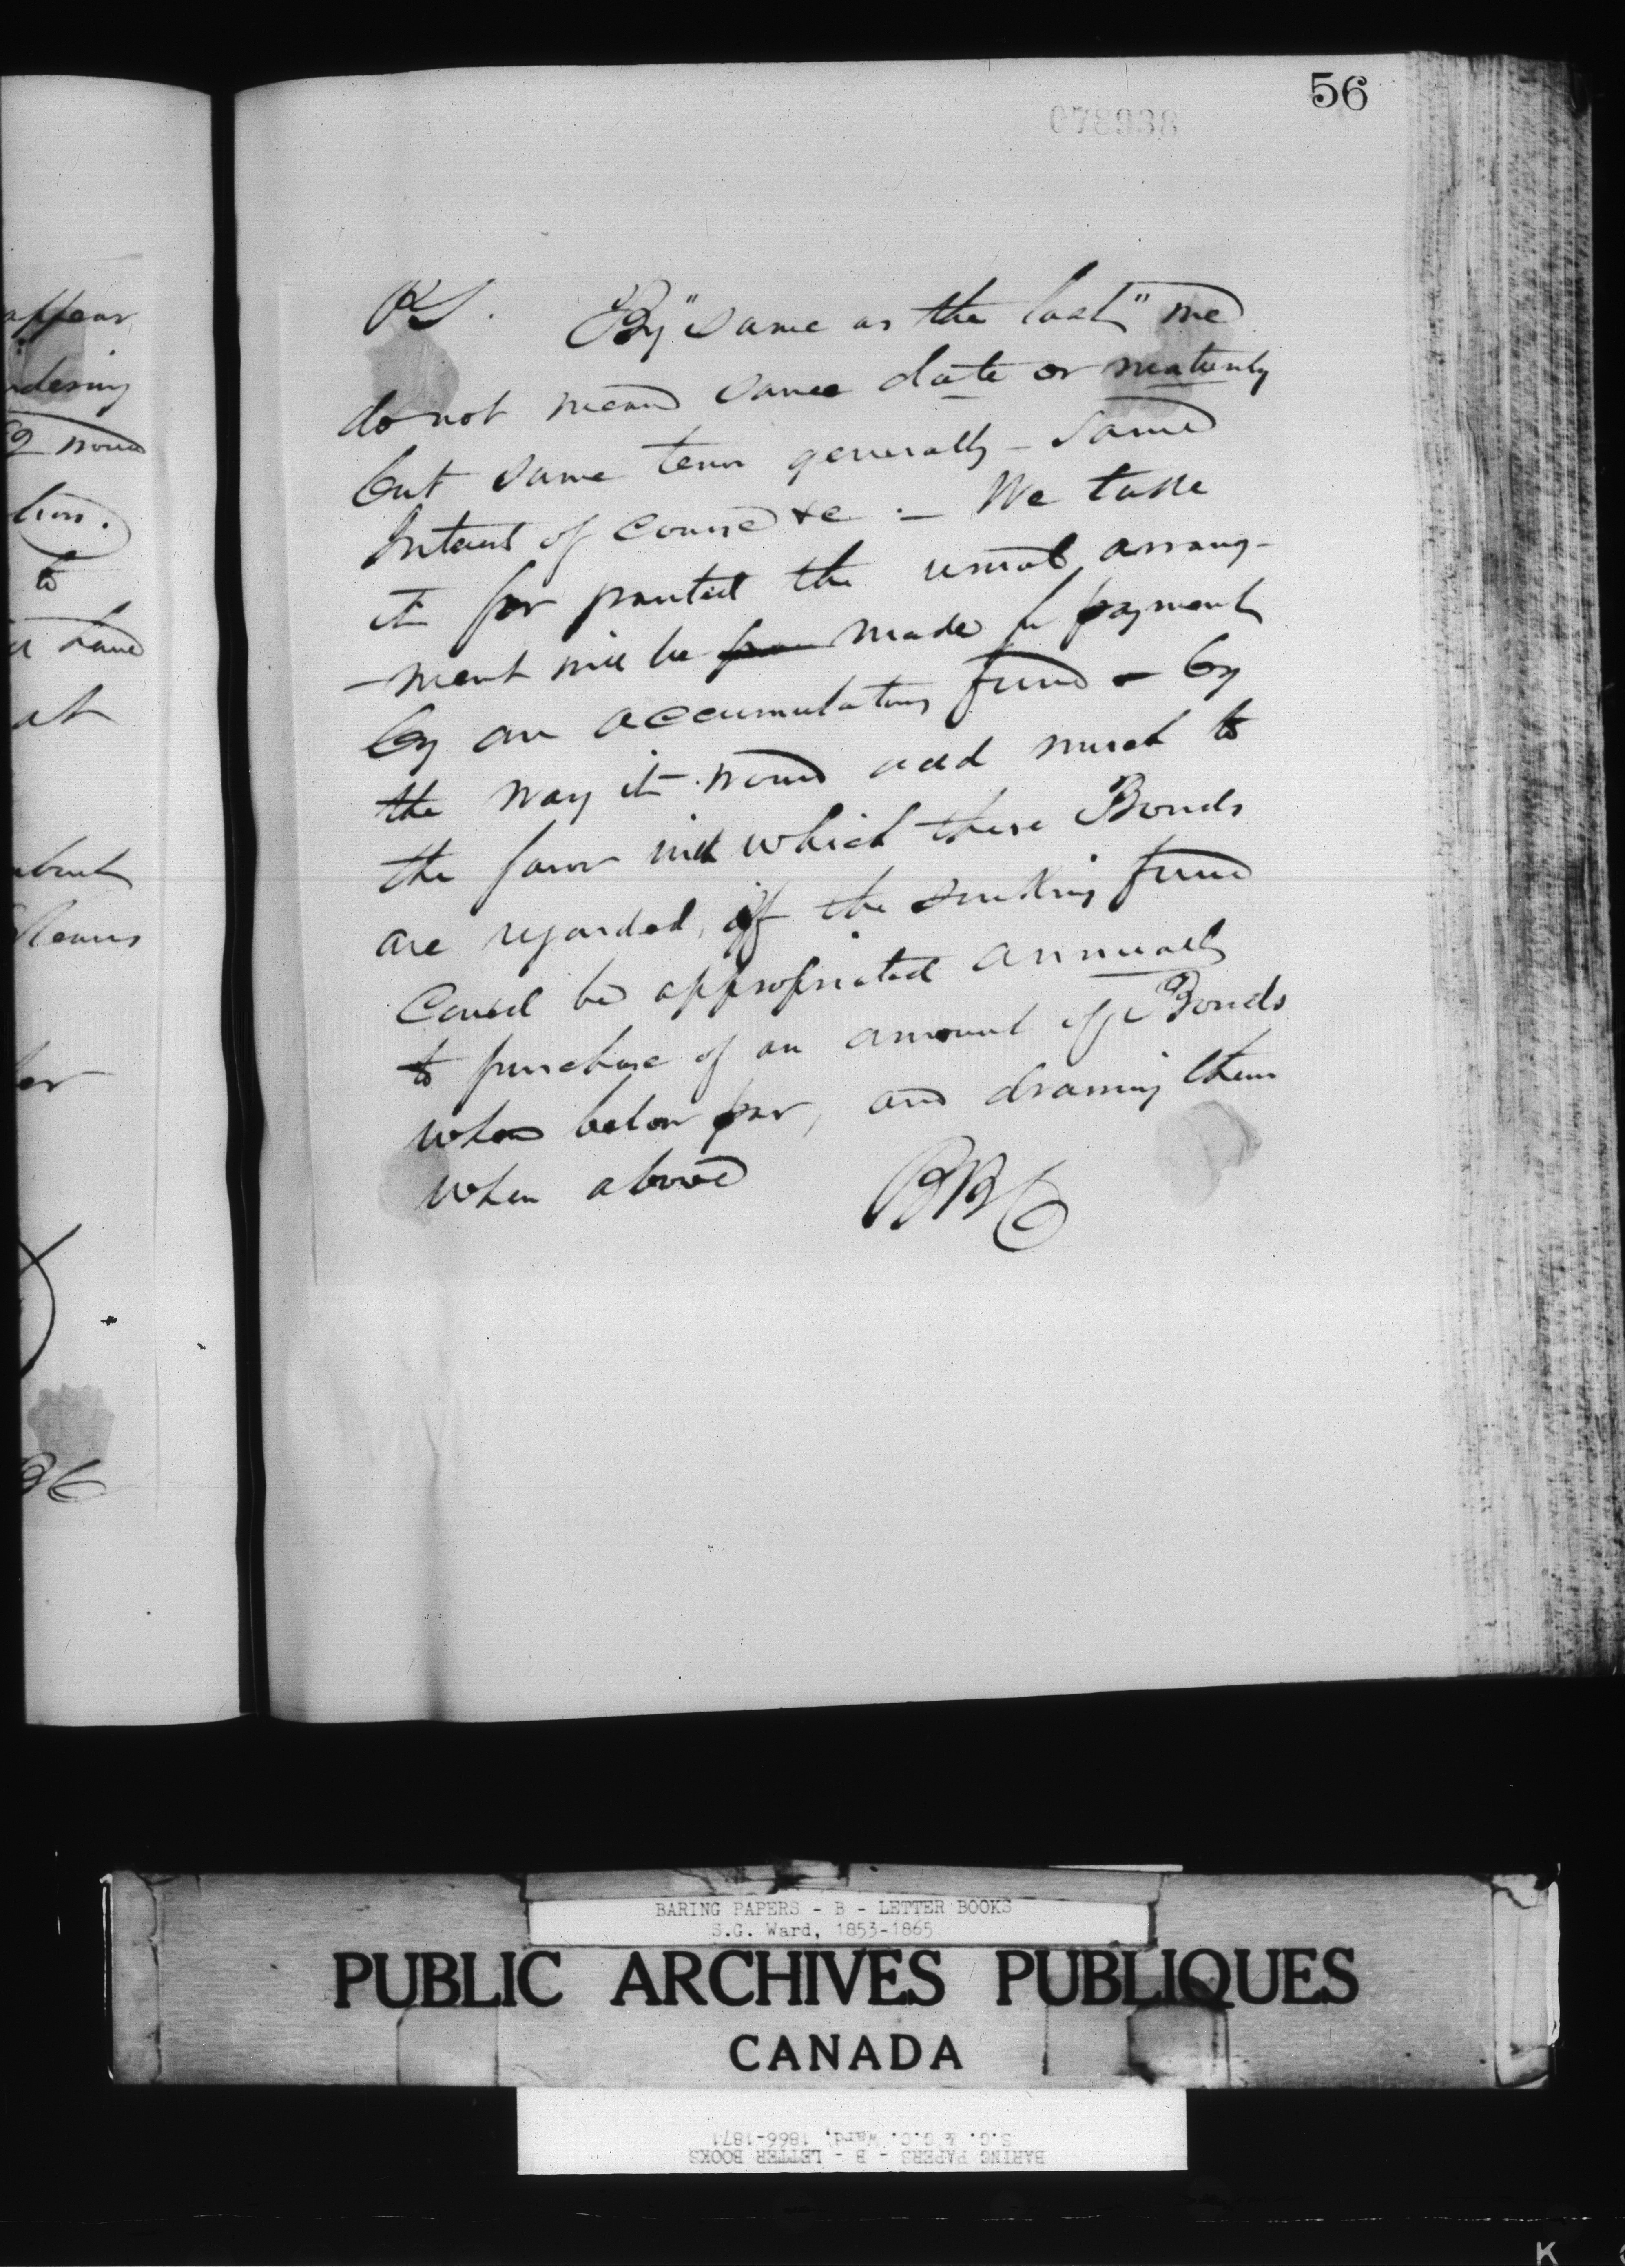 56
078938
appear
dering
wound
tion.
to
have
at
about
er
PS. By "same as the last" we
do not mean same date or maturity
but same tenor generally - same
Interest of course &c. - We take
it for granted the usual arrang-
-ment will be made for payment
by an accumulating fund - by
the way it would add much to
the favor with which these Bonds
are regarded, if the sinking fund
Could be appropriated annually
to purchase of an amount of Bonds
when below par, and drawing them
when above BB&C
BARING PAPERS - B - LETTER BOOKS
S.G. Ward, 1853-1865
PUBLIC ARCHIVES PUBLIQUES
CANADA
BARING PAPERS - B - LETTER BOOKS
S.G. & G.C. Ward, 1866-1871
K